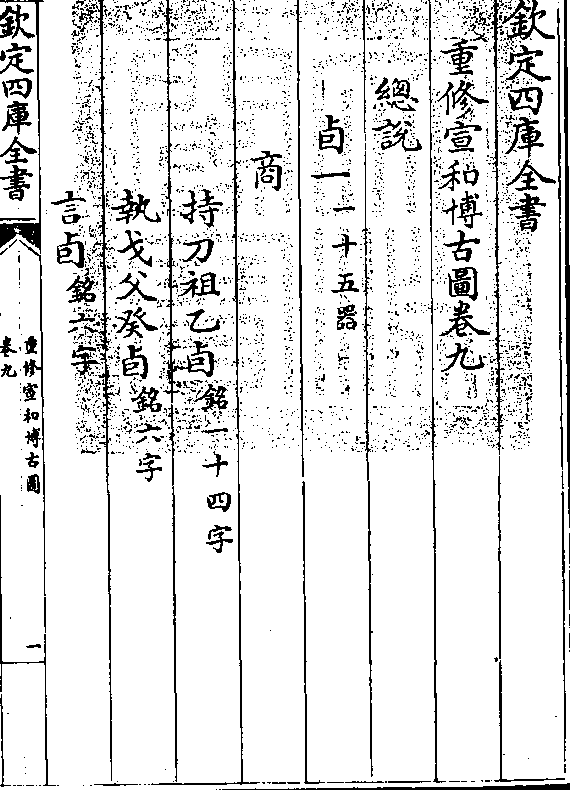 欽定四庫全書
重修宣和博古圖卷九
總說
卣一一十五器
商
持刀祖乙卣銘一十四字
執戈父癸卣銘六字
言卣銘六字
欽定四庫全書
重修宣和博古圖
卷九
一